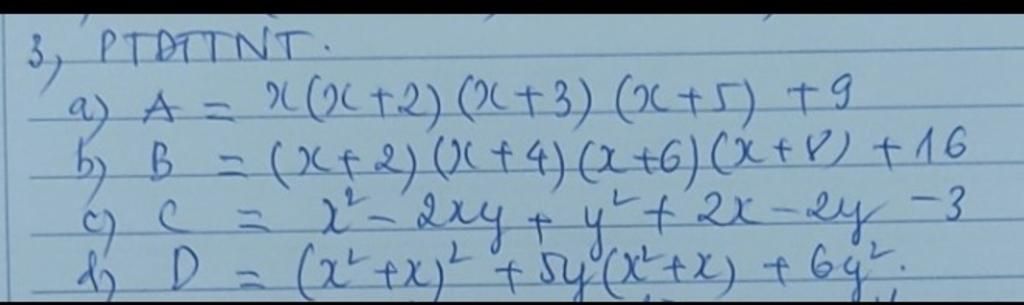 3, PTĐTTNT.
a) A = x(x+2)(x+3)(x+5) +9
b) B = (x+2)(x+4)(x+6)(x+8) +16
c) C = x² - 2xy + y² + 2x - 2y - 3
d) D = (x²+x)² + 5y(x²+x) + 6y².